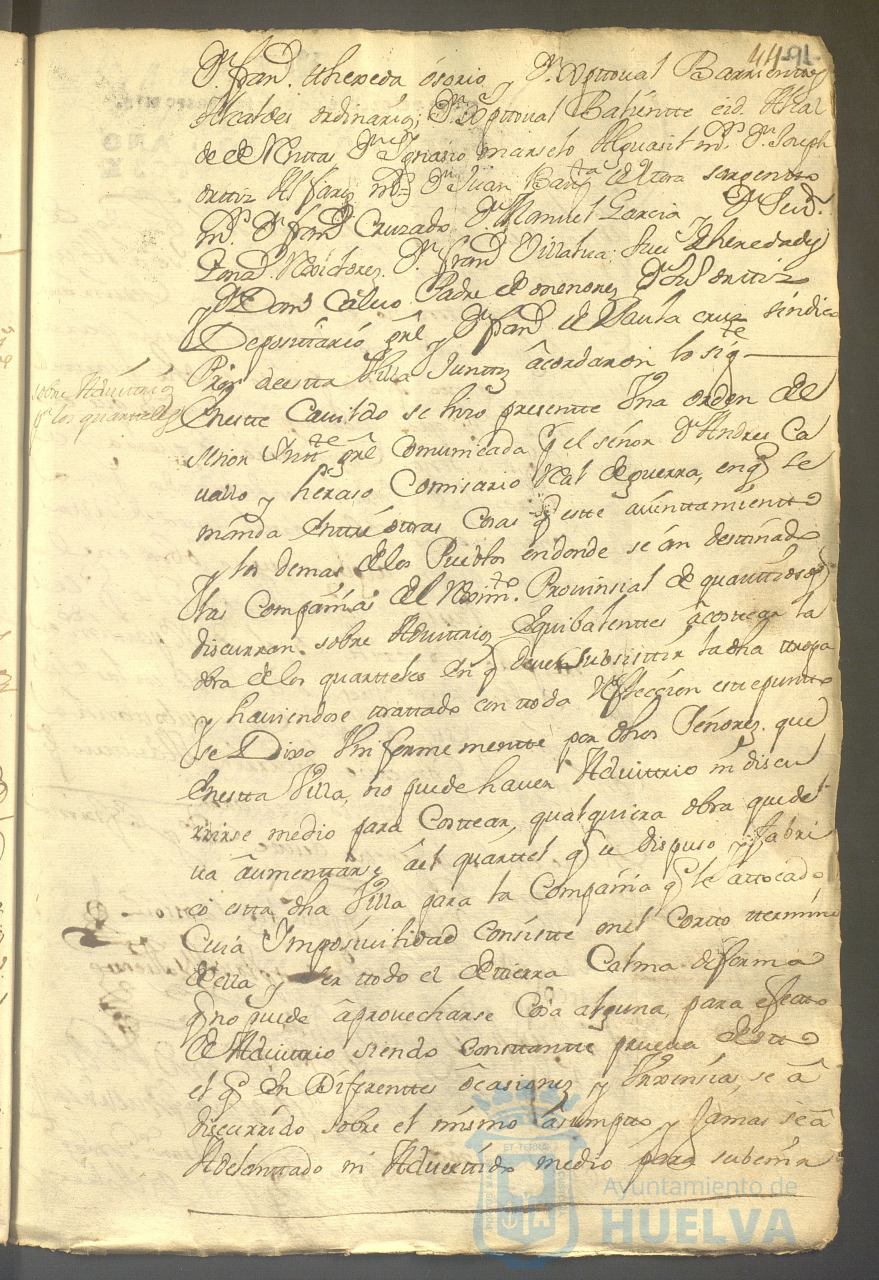 44-91-
Dn. Franco. thexeda ôsorio, y Dn. Xpttoual Barrientos
Alcaldes ordinarios; Dn. Xpttoual Balientte
de de Renttas Dn. Ignasio marselo Alguasil mor. Dn. Joseph
orttiz Alfarez mor. Dn. Juan Bautta. sargentto
mor. Dn. Franco. Cruzado, Dn. Manuel Garcia y Dn.
Rexidores, Dn. Franco. Villalua,
y Dn. Domo. Caluo Padre de menores, Dn. orttiz
Deposittario gral y Dn. Franco. de Santa cruz síndico
Pror. de estta Villa Junttos âcordaron lo sigte
sobre Aduittrios
pa. los quartteles
Enestte Cauildo se hizo presentte Una orden del
señor Yntte gral comunicada pr. el señor Dn. Andres Ca
uallo y heraso Comisario Real de guerra, en qe se
manda Enttre ottras Cosas qe estte aiunttamientto
y los demas delos Pueblos endonde se ân desttinado
las Compañias del Reximto. Provinsial de
discurran sobre Aduittrios Equibalenttes â costear la
obra de los quartteles en qe deue subsisttir la dha ttropa
y hauiendose ttrattado con ttoda reflección estte puntto
se Dixo Uniformementte por dhos Señores que
Enestta Villa, no puede hauer Aduittrio ni discu
rrirse medio para Costtear, qualquiera obra que de
ua âumenttarse âel quarttel qe se dispuso y fabri
co estta dha Villa para la Compañia qe le â ttocado,
Cuia Imposiuilidad consistte en el Cortto ttermino
de ella y ser ttodo el de tierra Calma de forma
qe no puede âprovecharse Cosa alguna, para efectto
de Aduittrio siendo consttantte prueua de estto
el qe en Diferenttes ôcasiones y Urxensias se â
discurrido sobre el mismo âsumptto y Jamas se â
Adelanttado ni Aduerttido medio para
Ayuntamiento de
HUELVA